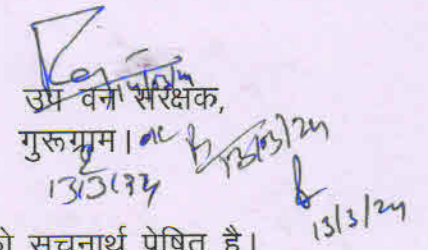 उप वन संरक्षक,
गुरूग्राम।
13/3/24
13/03/24
13/3/24
को सूचनार्थ प्रेषित है।